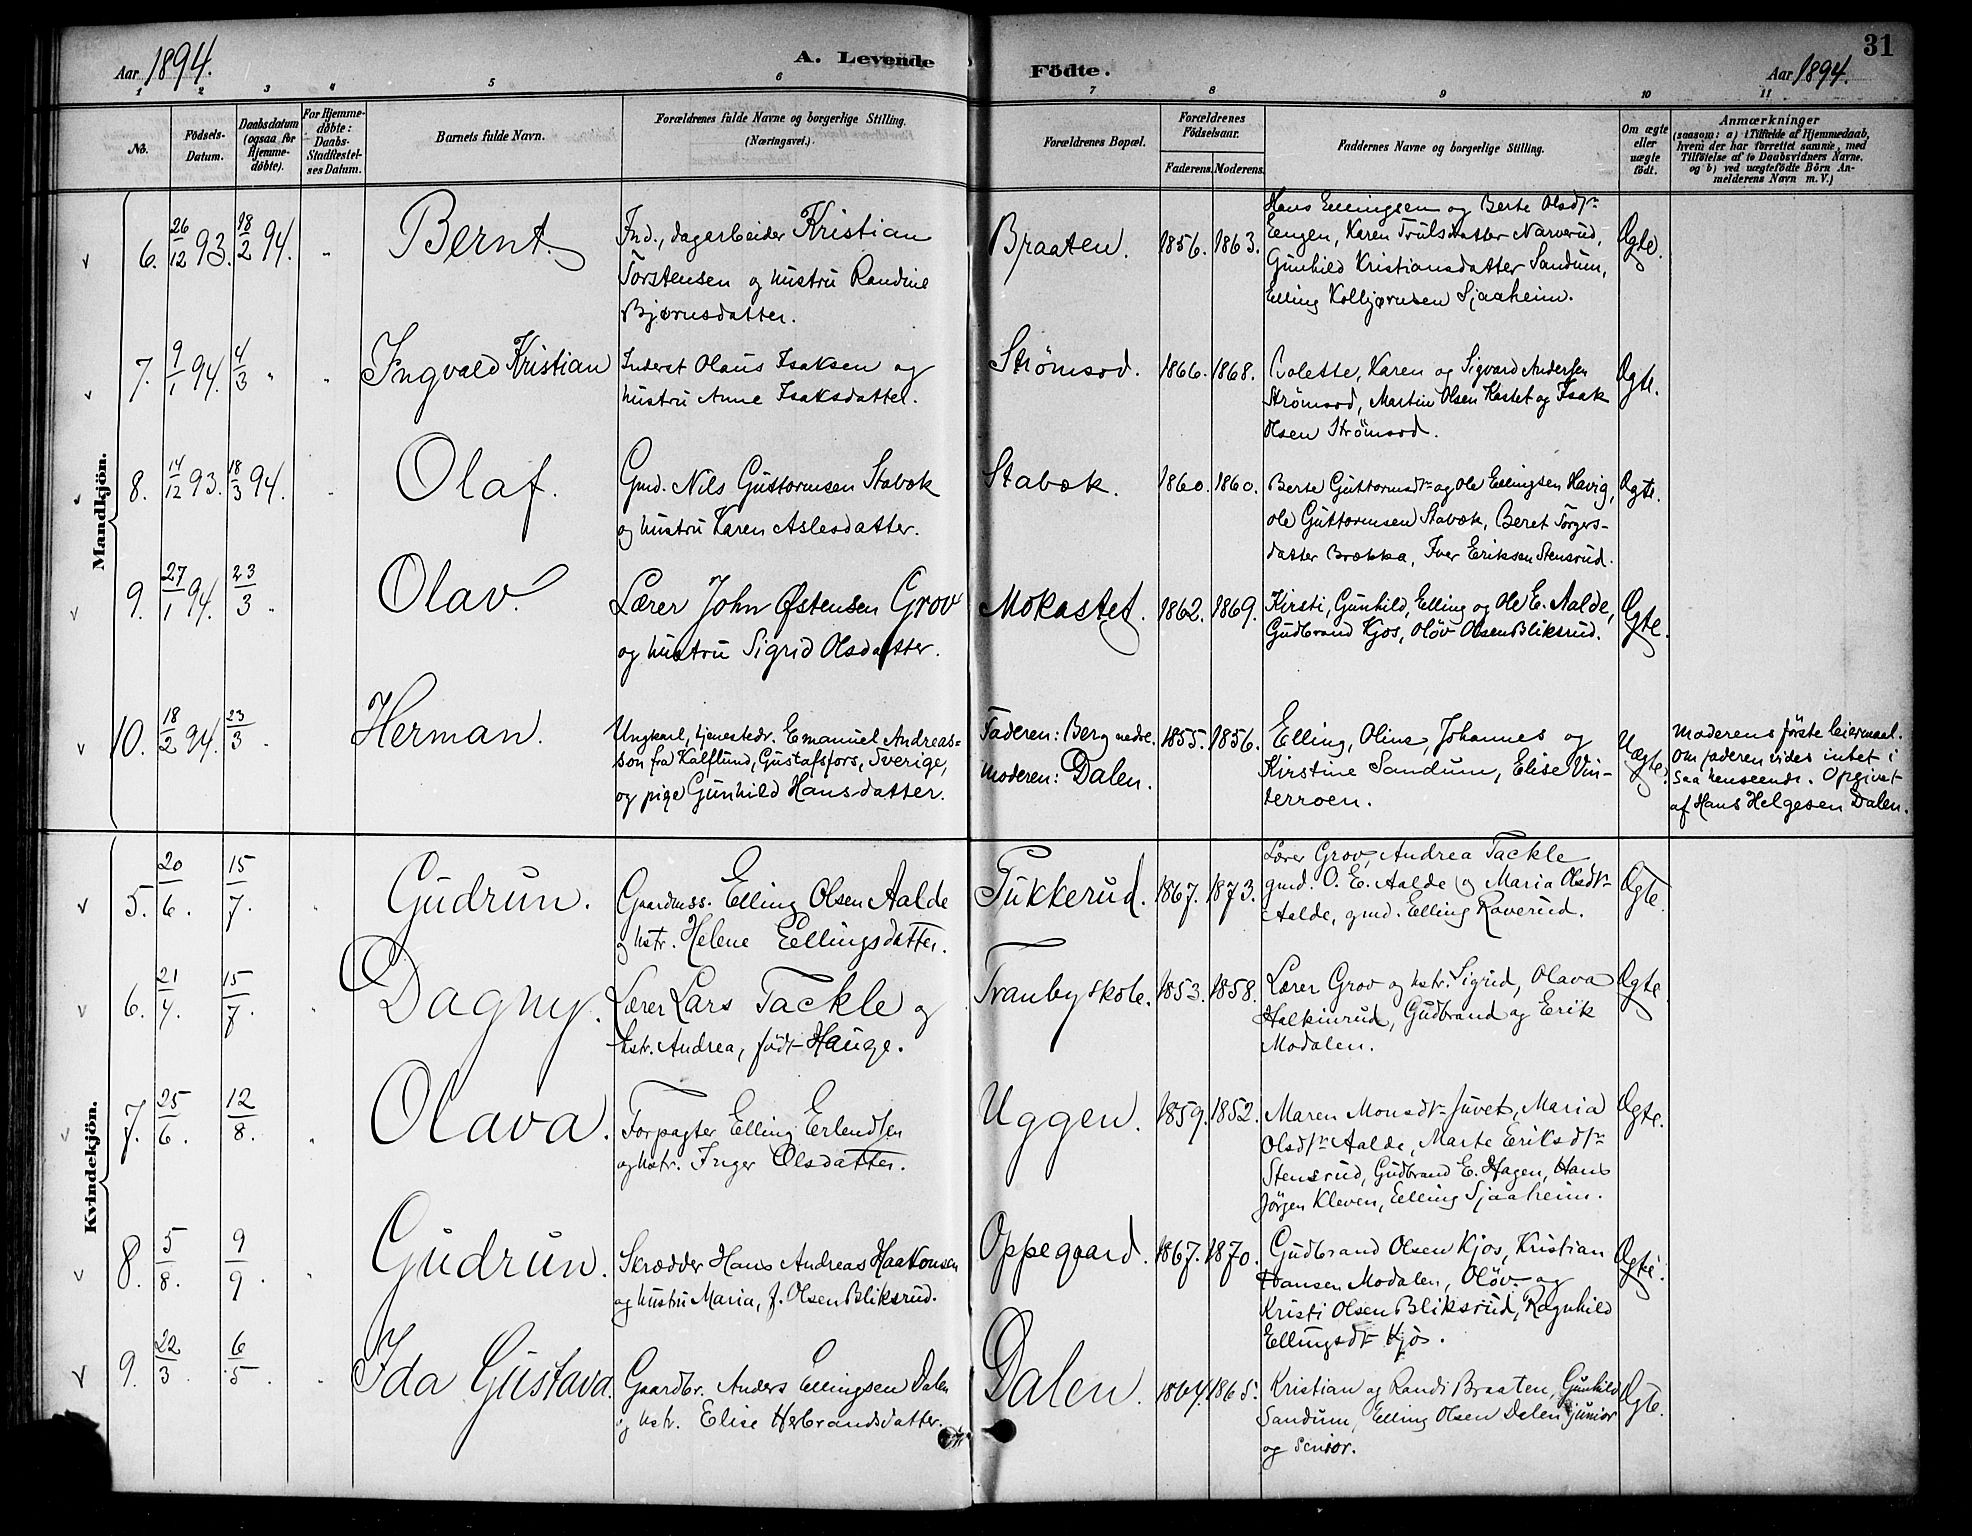 Aar 1894.
A. Levende Födte.
31
Aar 1894.
1 2 3 4 5 6 7 8 9 10 11
No.
Födsels-Datum.
Daabsdatum (ogsaa for Hjemmedöbte).
For Hjemmedøbte: Daabs-Stadfæstelses Datum.
Barnets fulde Navn.
Forældrenes fulde Navne og borgerlige Stilling. (Næringsvei.)
Forældrenes Bopæl.
Forældrenes Födselsaar.
Faderens. Moderens.
Faddernes Navne og borgerlige Stilling.
Om ægte eller uægte födt.
Anmærkninger
(saasom: a) i Tilfælde af Hjemmedaab, hvem der har forrettet samme, med Tilföielse af to Daabsvidners Navne. og b) ved uægtefödte Börn Anmelderens Navn m. V.)
Mandkjön.
6. 26/12 93. 18/2 94. „ Bernt.
Ind., dagarbeider Kristian
Torstensen og hustru Randine
Bjørnsdatter.
Braaten. 1856. 1863.
Hans Ellingsen og Berte Olsdtr
Eengen, Karen Trulsdatter Narverud,
Gunhild Kristiansdatter Sandum,
Elling Kolbjørnsen Sjaaheim.
Ægte.
7. 9/1 94. 4/3 „ „ Ingvald Kristian
Inderst Olaus Isaksen og
hustru Anne Isaksdatter.
Strömsod. 1866. 1868.
Bolette, Karen og Sigvard Andersen
Strömsod, Martin Olsen Kastet og Isak
Olsen Strömsod.
Ægte.
8. 14/12 93. 18/3 94. „ Olaf.
Gmd. Nils Guttormsen Stabæk
og hustru Karen Aslesdatter.
Stabæk. 1860. 1860.
Berte Guttormsdtr og Ole Ellingsen Havig,
Ole Guttormsen Stabæk, Beret Torgers-
datter Brækka, Iver Eriksen Stensrud.
Ægte.
9. 27/1 94. 23/3 „ Olav.
Lærer John Østensen Grov
og hustru Sigrid Olsdatter.
Mokastet. 1862. 1869.
Kirsti, Gunhild, Elling og Ole E. Aalde,
Gudbrand Kjos, Olöv Olsen Bliksrud.
Ægte.
10. 18/2 94. 23/3 „ Herman.
Ungkarl, tjenestedr. Emanuel Andreas-
son fra Kalflund, Gustafsfors, Sverige,
og pige Gunhild Hansdatter.
Faderen: Berg nedre.
Moderen: Dalen.
1855. 1856.
Elling, Oline, Johannes og
Kirstine Sandum, Elise Vin-
terroen.
Uægte.
Moderens første leiermaal.
Om faderen vides intet i
saa henseende. Opgivet
af Hans Helgesen Dalen.
Kvindekjön.
5. 20/6. 15/7. „ Gudrun.
Gaardmss. Elling Olsen Aalde
og hstr. Helene Ellingsdatter.
Tukkerud. 1867. 1873.
Lærer Grov, Andrea Tackle
gmd. O. E. Aalde og Maria Olsdtr
Aalde, gmd. Elling Raverud.
Ægte.
6. 21/4. 15/7. „ Dagny.
Lærer Lars Tackle og
hstr. Andrea, født Hauge.
Tranby skole. 1853. 1858.
Lærer Grov og hstr. Sigrid, Olava
Halkinrud, Gudbrand og Erik
Modalen.
Ægte.
7. 25/6. 12/8. „ Olava.
Forpagter Elling Erlendsen
og hstr. Inger Olsdatter.
Uggen. 1859. 1852.
Maren Monsdtr Juvet, Maria
Olsdtr Aalde, Marte Eriksdtr
Stensrud, Gudbrand E. Hagen, Hans
Jörgen Kleven, Elling Sjaaheim.
Ægte.
8. 5/8. 9/9. „ Gudrun.
Skrædder Hans Andreas Haakonsen
og hustru Maria, f. Olsen Bliksrud.
Oppegaard. 1867. 1870.
Gudbrand Olsen Kjos, Kristian
Hansen Modalen, Olöv og
Kristi Olsen Bliksrud, Ragnhild
Ellingsdt Kjös.
Ægte.
9. 22/3. 6/5. „ Ida Gustava.
Gaardbr. Anders Ellingsen Dalen
og hstr. Elise Herbrandsdatter.
Dalen. 1864. 1865.
Kristian og Randi Braaten, Gunhild
Sandum, Elling Olsen Dalen junior
og senior.
Ægte.